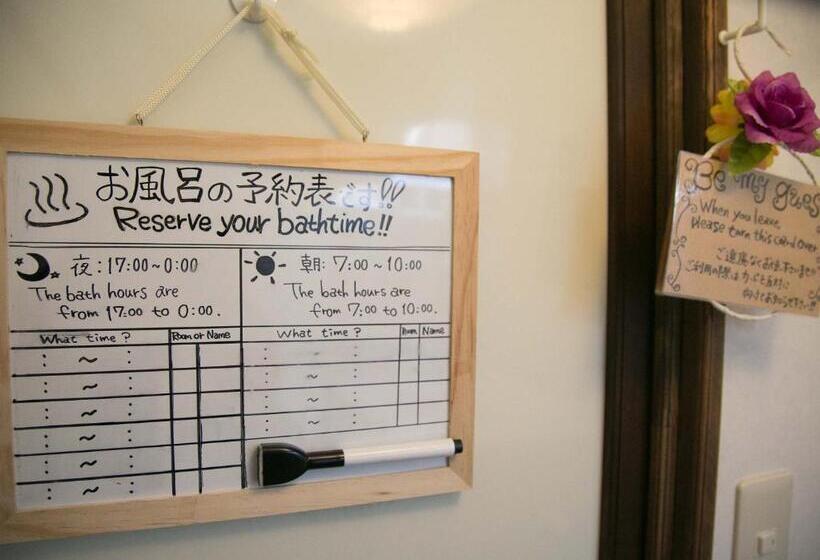 お風呂の予約表です!!
Reserve your bathtime!!
夜:17:00~0:00
The bath hours are
from 17:00 to 0:00.
朝:7:00~10:00
The bath hours are
from 7:00 to 10:00.
What time? Room or Name
: ~ :
: ~ :
: ~ :
: ~ :
: ~ :
: ~ :
What time? Room Name
: ~ :
: ~ :
: ~ :
: ~ :
Be my gues
When you leave,
please turn this card over
ご遠慮なくお使い下さいませ
ご利用の際は
向けてお知らせ下さい!!